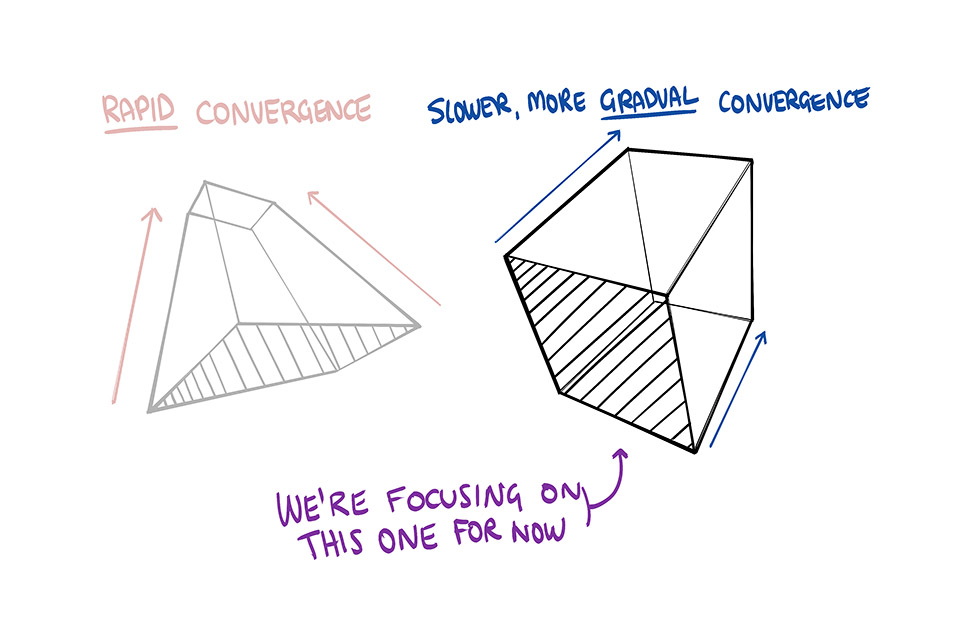 RAPID CONVERGENCE
SLOWER, MORE GRADUAL CONVERGENCE
WE'RE FOCUSING ON
THIS ONE FOR NOW